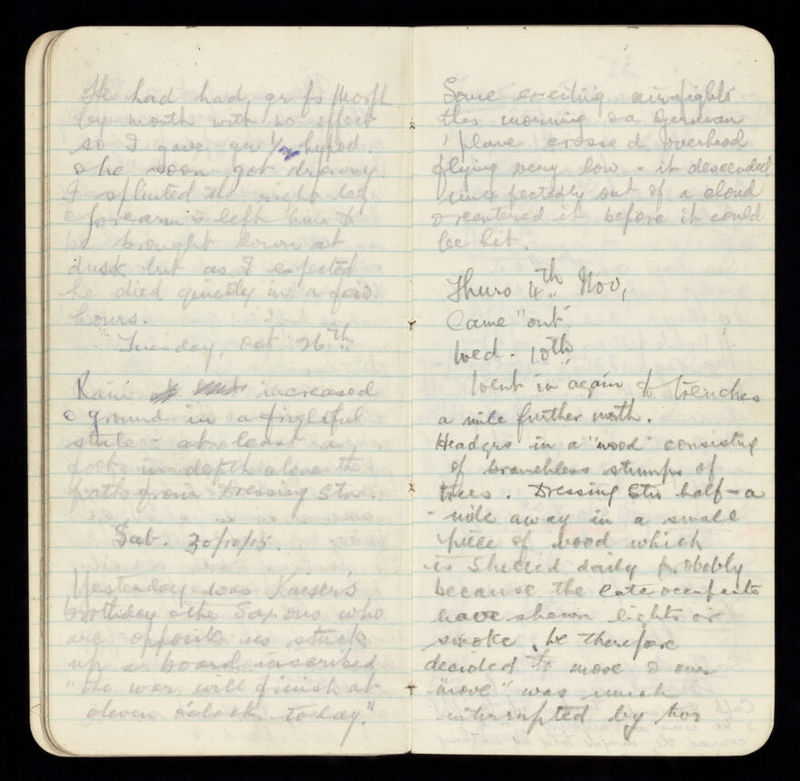 He had had gr ss Morph
by mouth with no effect
so I gave gr 1/2 hypod.
& he soon got drowsy.
I splinted the right leg
& forearm & left him to
be brought down at
dusk but as I expected
he died quietly in a few
hours.
Tuesday, Oct 26th
Rain increased
& ground in a frightful
state - at least a
foot in depth along the
path from Dressing Stn.
Sat. 30/10/15.
Yesterday was Kaiser's
birthday & the Saxons who
are opposite us stuck
up a board inscribed
"the war will finish at
eleven o'clock to-day."
Some exciting airfights
this morning & a German
'plane crossed overhead
flying very low - it descended
unexpectedly out of a cloud
& reentered it before it could
be hit.
Thurs 4th Nov,
Came "out"
Wed. 10th
Went in again to trenches
a mile further north.
Headqrs in a "wood" consistg
of branchless stumps of
trees. Dressing Stn half-a
-mile away in a small
piece of wood which
is shelled daily probably
because the late occupants
have shewn lights or
smoke. We therefore
decided to move & our
"move" was much
interrupted by